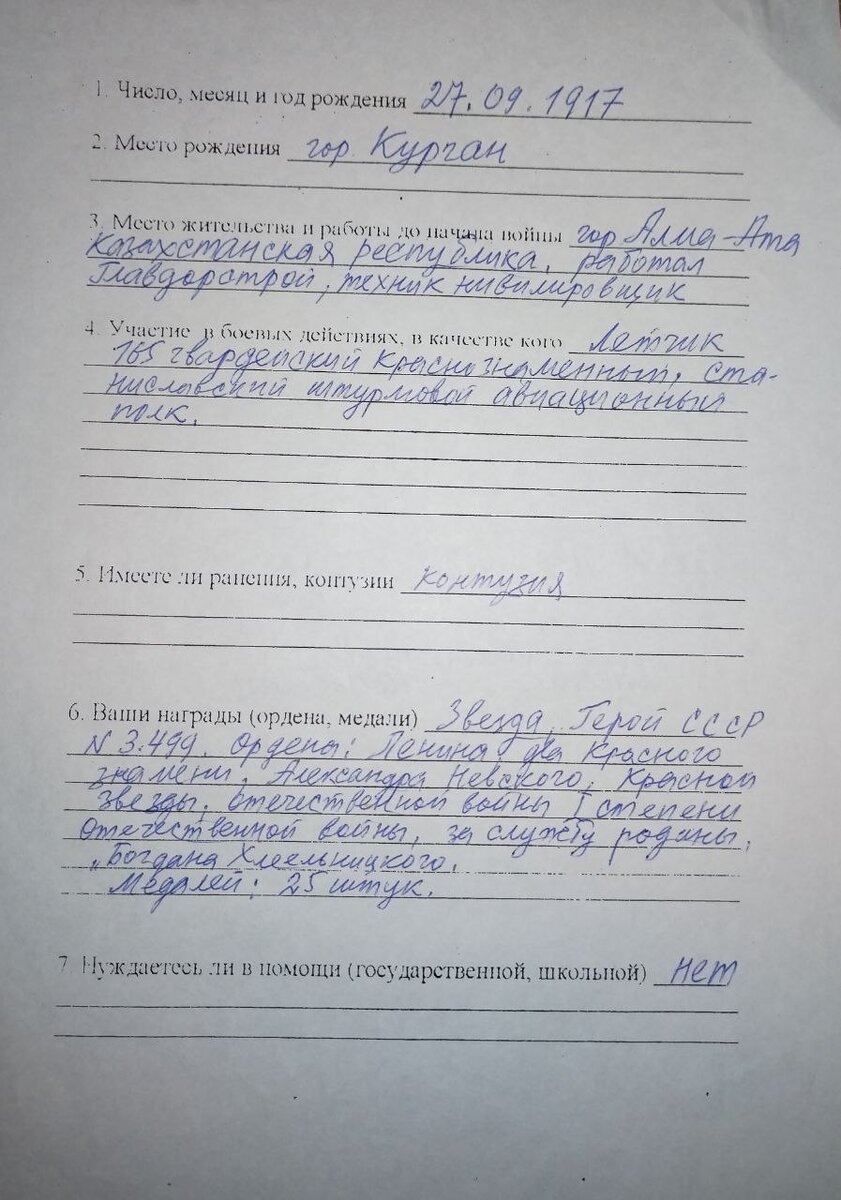 1. Число, месяц и год рождения 27.09.1917
2. Место рождения гор. Курган
3. Место жительства и работы до начала войны гор Алма-Ата
Казахстанская республика, работал
Главдорстрой, техник нивилировщик
4. Участие в боевых действиях, в качестве кого Летчик
165 гвардейский Краснознаменный, Ста-
ниславский штурмовой авиационный
полк.
5. Имеете ли ранения, контузии контузия
6. Ваши награды (ордена, медали) Звезда Герой СССР
N 3.499. Ордена: Ленина два Красного
знамени, Александра Невского, Красной
звезды, отечественной войны I степени
Отечественной войны, за службу родины,
"Богдана Хмельницкого.
Медалей: 25 штук.
7. Нуждаетесь ли в помощи (государственной, школьной) нет